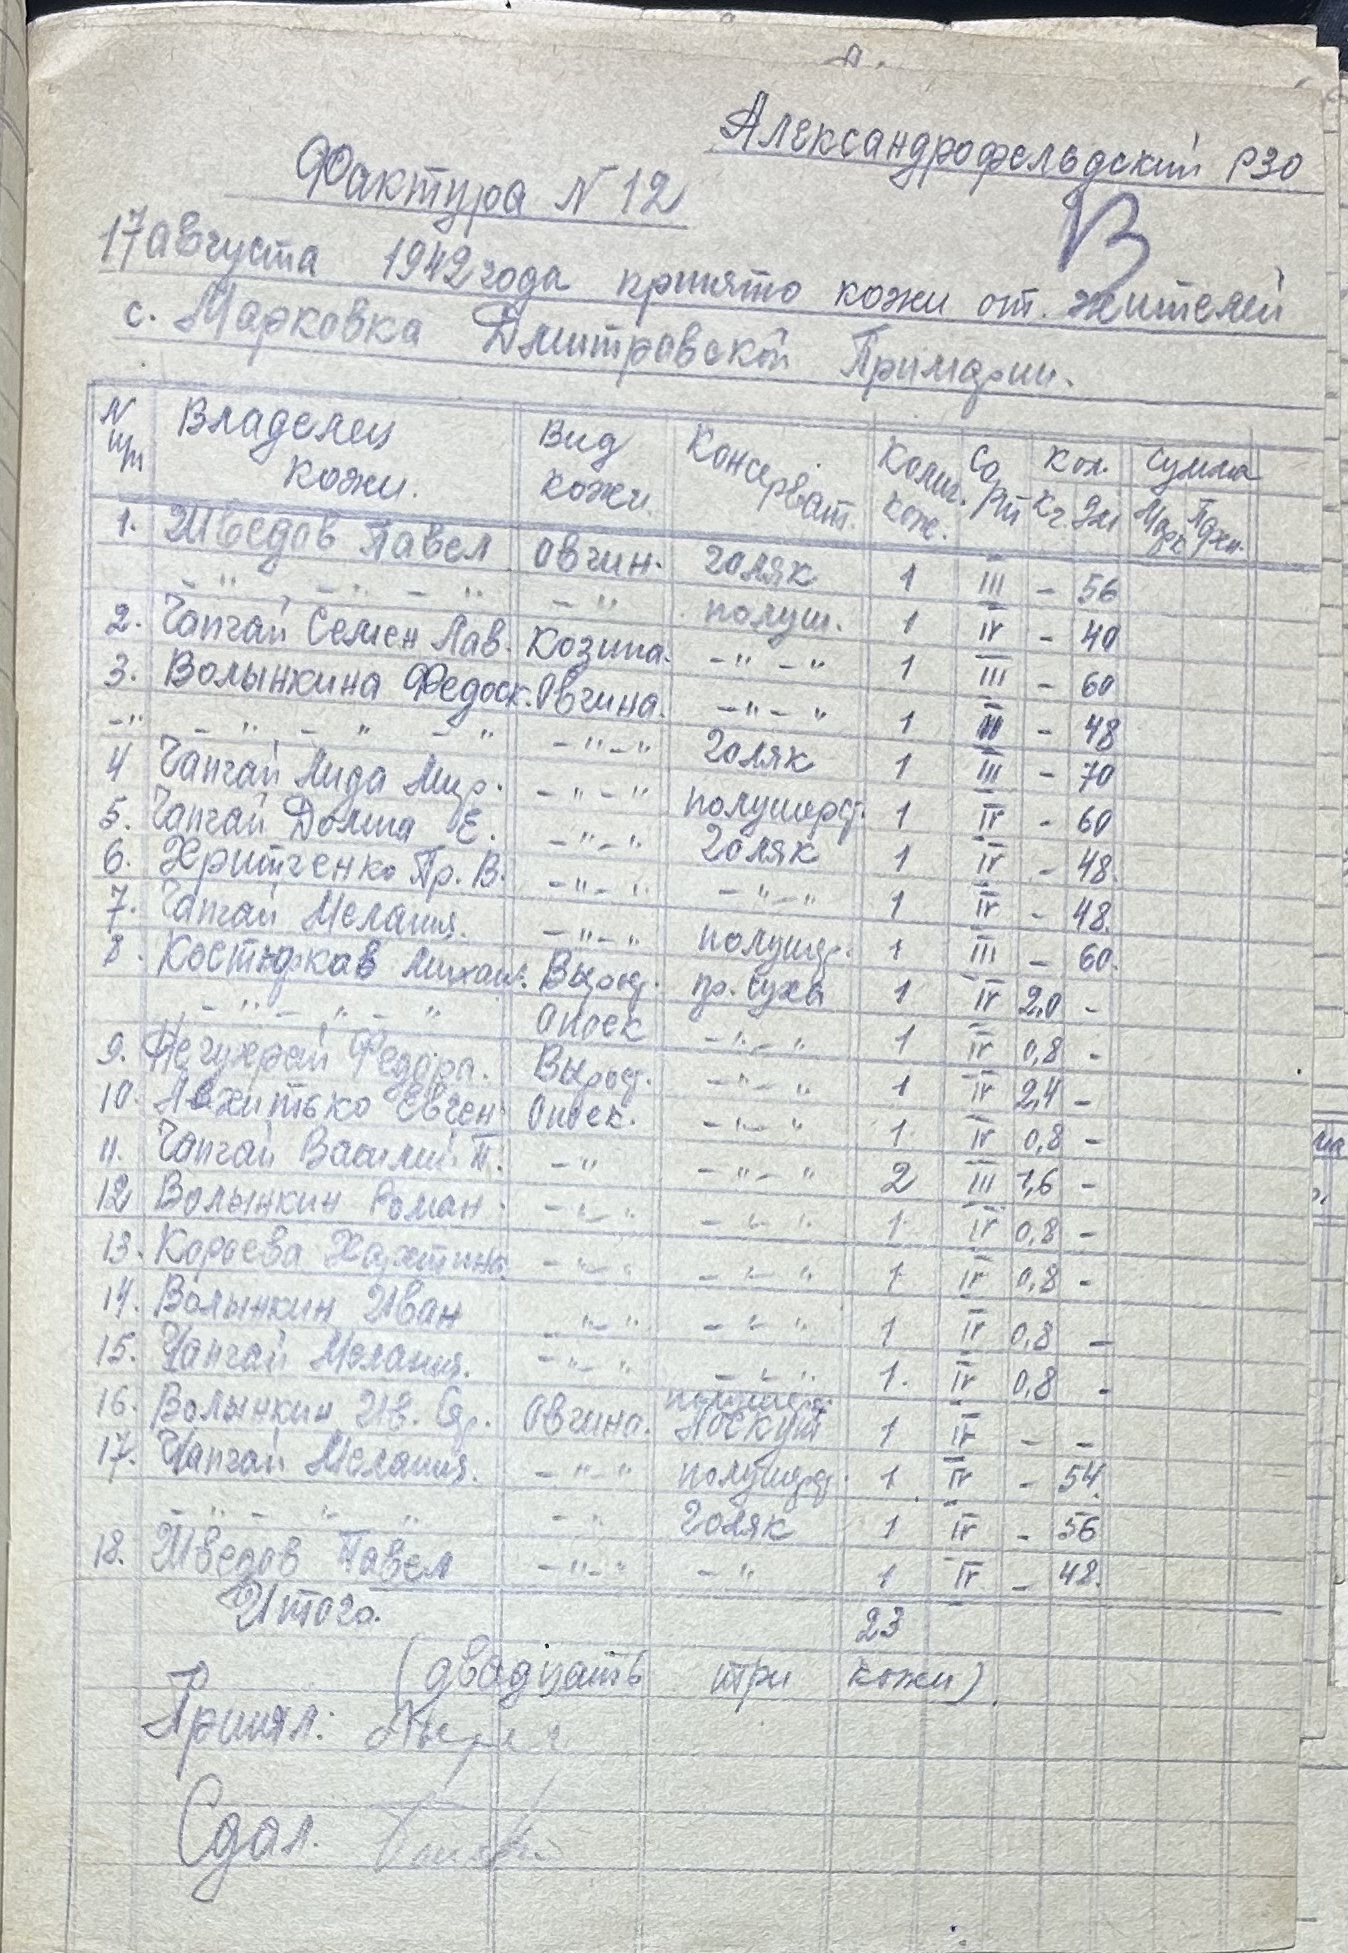 Александрофельдский РЗО
Фактура N 12
В
17 августа 1942 года принято кожи от жителей
с. Марковка Дмитравской Примарии.
N п/п Владелец кожи. Вид кожи. Консерват. Колич. кож. Сорт Кол. Кг. Дм Сумма Марк Пфен.
1. Шведов Павел Овчин. голяк 1 III - 56
-"- -"- -" полуш. 1 IV - 40
2. Чапгай Семен Лав. Козина. -"-" 1 III - 60
3. Волынкина Федоск. Овчина. -"-" 1 III - 48
-" -"-"-" -"-" голяк 1 III - 70
4 Чапгай Лида -"-" полушерс. 1 IV - 60
5. Чапгай Домна Е. -"-" голяк 1 IV - 48.
6. Хритченко Пр. В. -"-" -"-" 1 IV - 48.
7. Чапгай Мелания. -"-" полушр. 1 III - 60.
8. Костюжкав Михаил. Вырос. пр. суха 1 IV 2,0 -
-"-"-" Опоек -"-" 1 IV 0,8 -
9. Федора. Вырос. -"-" 1 IV 2,4 -
10. Евген Опоек. -"-" 1. IV 0,8 -
11. Чапгай Василий П. -" -"-" 2 III 1,6 -
12 Волынкин Роман -"-" -"-" 1 IV 0,8 -
13. Короева -"-" -"-" 1 IV 0,8 -
14. Волынкин Иван -"-" -"-" 1 IV 0,8 -
15. Чапгай Мелания. -"-" -"-" 1. IV 0,8 -
16. Волынкин Ив. Овчина. лоскут 1 IV - -
17. Чапгай Мелания. -"-" полушерс. 1 IV - 54.
-"-"-" -" голяк 1 IV - 56
18. Шведов Павел -"-" -" 1 IV - 48.
Итого. 23
(двадцать три кожи).
Принял:
Сдал.